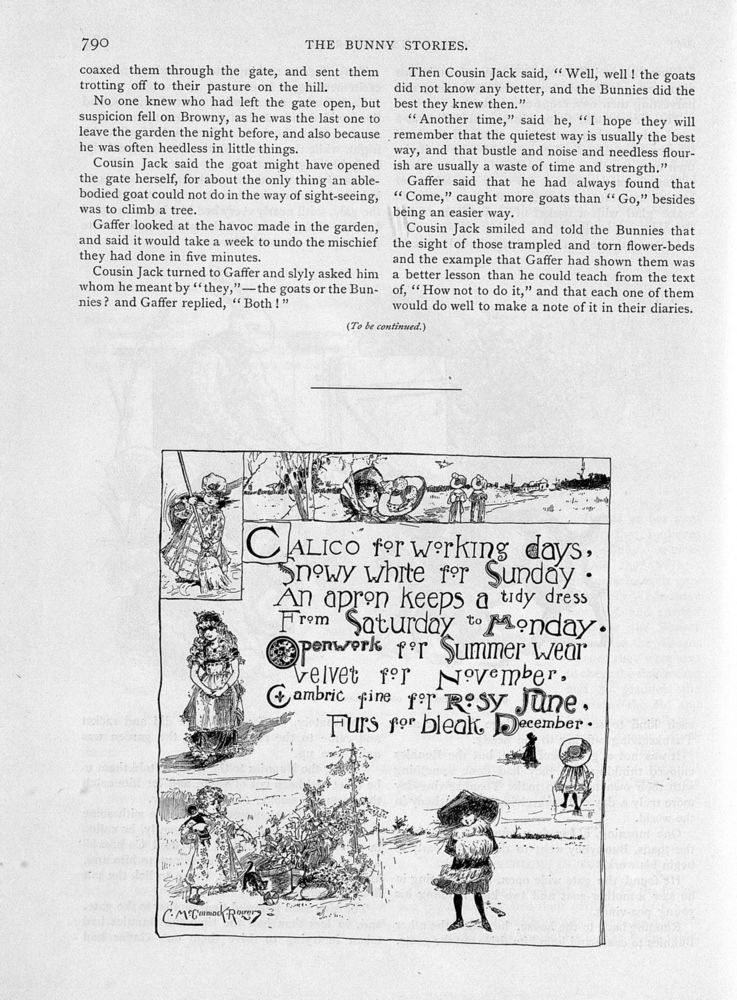 790
THE BUNNY STORIES.
coaxed them through the gate, and sent them
trotting off to their pasture on the hill.
No one knew who had left the gate open, but
suspicion fell on Browny, as he was the last one to
leave the garden the night before, and also because
he was often heedless in little things.
Cousin Jack said the goat might have opened
the gate herself, for about the only thing an able-
bodied goat could not do in the way of sight-seeing,
was to climb a tree.
Gaffer looked at the havoc made in the garden,
and said it would take a week to undo the mischief
they had done in five minutes.
Cousin Jack turned to Gaffer and slyly asked him
whom he meant by “they,”—the goats or the Bun-
nies? and Gaffer replied, “Both!”
Then Cousin Jack said, “Well, well! the goats
did not know any better, and the Bunnies did the
best they knew then.”
“Another time,” said he, “I hope they will
remember that the quietest way is usually the best
way, and that bustle and noise and needless flour-
ish are usually a waste of time and strength.”
Gaffer said that he had always found that
“Come,” caught more goats than “Go,” besides
being an easier way.
Cousin Jack smiled and told the Bunnies that
the sight of those trampled and torn flower-beds
and the example that Gaffer had shown them was
a better lesson than he could teach from the text
of, “How not to do it,” and that each one of them
would do well to make a note of it in their diaries.
(To be continued.)
CALICO for working days,
Snowy white for Sunday.
An apron keeps a tidy dress
From Saturday to Monday.
Openwork for Summer wear
Velvet for November,
Cambric fine for Rosy June,
Furs for bleak December.
C. McCormack Rogers